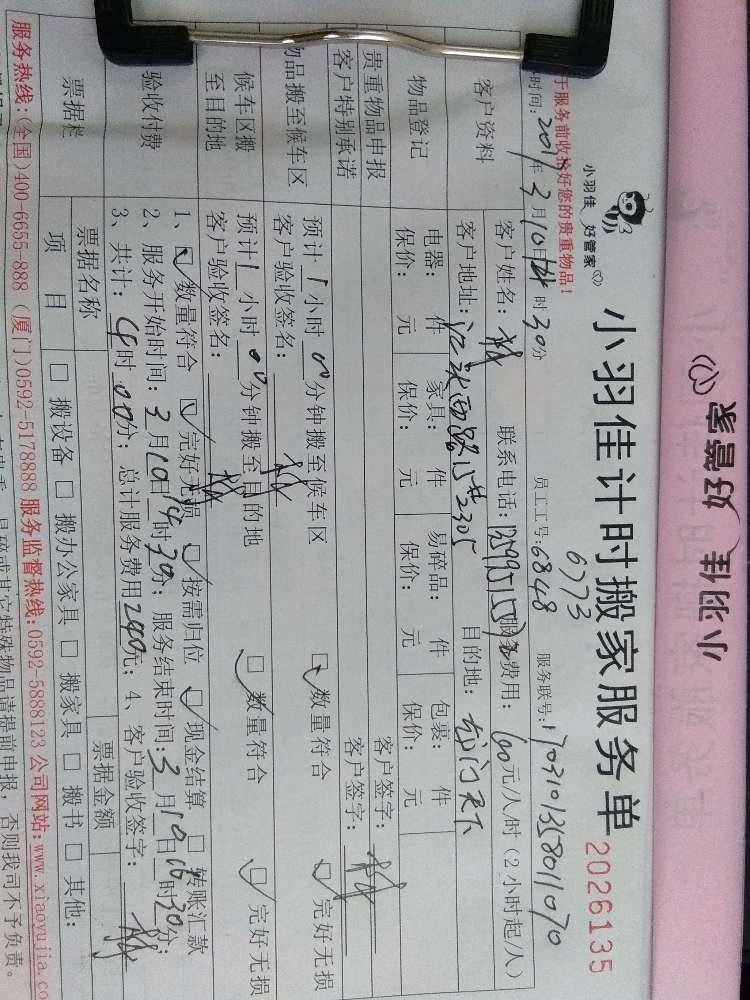 小羽佳 好管家
小羽佳 好管家
小羽佳计时搬家服务单
2026135
于服务前收拾好您的贵重物品！
6773
时间：2017年3月10日14时30分 员工工号：6848 服务联号：170310135801070
客户资料
客户姓名： 联系电话： 服务费用：60元/人/时（2小时起/人）
客户地址： 西路15#2305 目的地：龙门天下
物品登记
电器： 件 家具： 件 易碎品： 件 包裹： 件
保价： 元 保价： 元 保价： 元 保价： 元
贵重物品申报 客户签字：
客户特别承诺 客户签字：
物品搬至候车区
预计1小时00分钟搬至候车区 数量符合 完好无损
客户验收签名：
候车区搬至目的地
预计1小时00分钟搬至目的地 数量符合 完好无损
客户验收签名：
验收付费
1、数量符合 完好无损 按需归位 现金结算 转账汇款
2、服务开始时间：3月10日14时30分；服务结束时间：3月10日16时30分；
3、共计：4时00分；总计服务费用240元；4、客户验收签字：
票据名称 票据金额
项目 搬设备 搬办公家具 搬家具 搬书 其他：
服务热线：(全国)400-6655-888 (厦门)0592-5178888 服务监督热线：0592-5888123 公司网站：www.xiaoyujia.co
特殊物品请提前申报，否则我司不予负责。